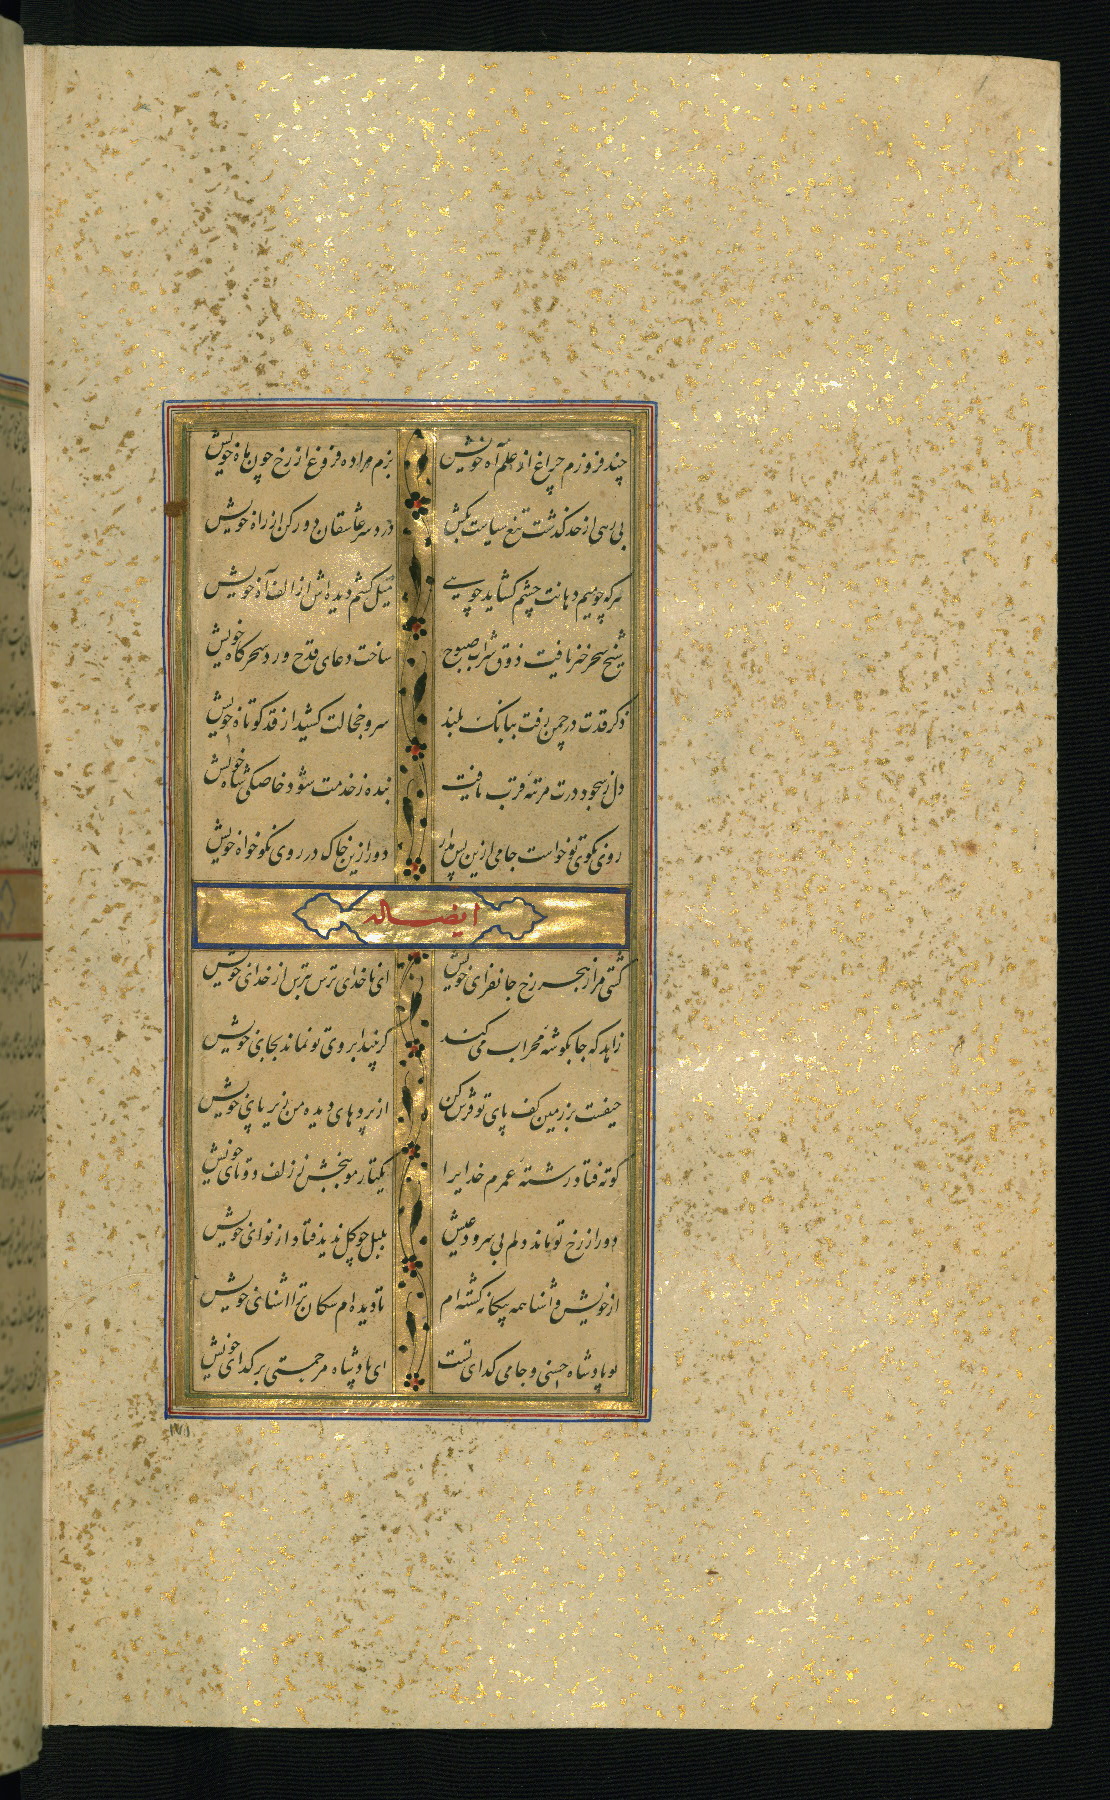 چند فروزم چراغ از علم آه خویش بزم مرا ده فروغ از رخ چون ماه خویش
بی رهی از حد گذشت تیغ سیاست بکش درد سر عاشقان دور کن از راه خویش
هر که چو میم دهانت چشم گشاید چو هی میل کشم دیده اش از الف آه خویش
شیخ سحر خیز یافت ذوق شراب صبوح ساخت دعای قدح ورد سحرگاه خویش
ذکر قدت در چمن رفت ببانگ بلند سرو خجالت کشید از قد کوتاه خویش
دل ز سجود درت مرتبهٔ قرب یافت بنده ز خدمت شود خاصکی شاه خویش
روی بکوی تو خواست جامی ازین پس مدار دور ازین خاک در روی نکو خواه خویش
ایضا له
کشتی مرا ز هجر رخ جانفزای خویش ای ناخدای ترس بترس از خدای خویش
زاهد که جا بگوشهٔ محراب می کند گر بیند ابروی تو نماند بجای خویش
حیفست بر زمین کف پای تو فرش کن از پردهای دیده من زیر پای خویش
کوته فتاد رشتهٔ عمرم خدایرا یکتار مو ببخش ز زلف دوتای خویش
دور از رخ تو ماند دلم بی سرود عیش بلبل چو گل ندید فتاد از نوای خویش
از خویش و آشنا همه بیگانه گشته ام تا دیده ام سگان ترا آشنای خویش
تو پادشاه حسنی و جامی گدای تست ای پادشاه مرحمتی بر گدای خویش